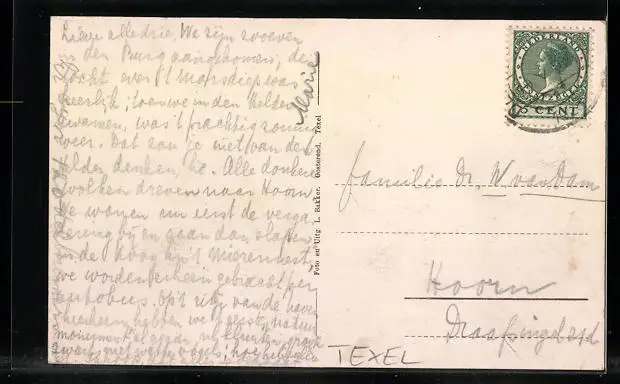 Lieve alledrie, We zijn zooeven
in den Burg aangekomen, de
tocht over 't Marsdiep was
heerlijk; toen we in den Helder
kwamen, was 't prachtig zonnig
weer. Dat kan je niet van den
Helder denken, hè. Alle donkere
wolken dreven naar Hoorn
We wonen nu eerst de verga
dering bij en gaan dan slapen
in de Koog in 't Mierennest
we worden erheen gebracht per
autobus. Op 't van de haven
hierheen hebben we natuur
monument gezien,
zwart met witte vogels,
Foto en Uitg. L. Bakker. Oosterend. Texel
NEDERLAND
POSTZEGEL
5 CENT
Familie Dr. W van Dam
Hoorn
Draafsingel
TEXEL